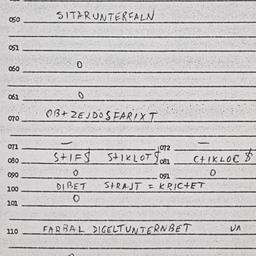 050 SITARUNTERFALN
051
060 0
061 0
070 OB+ZEJDOSFARIXT
071 — 072 —
080 S+IF$ S+IKLOT$ 081 C+IKLOC $
090 0 091 0
100 DIBET S+RAJT = KRIC+ET
101 0
110 FARBAL DIGELTUNTERNBET UA